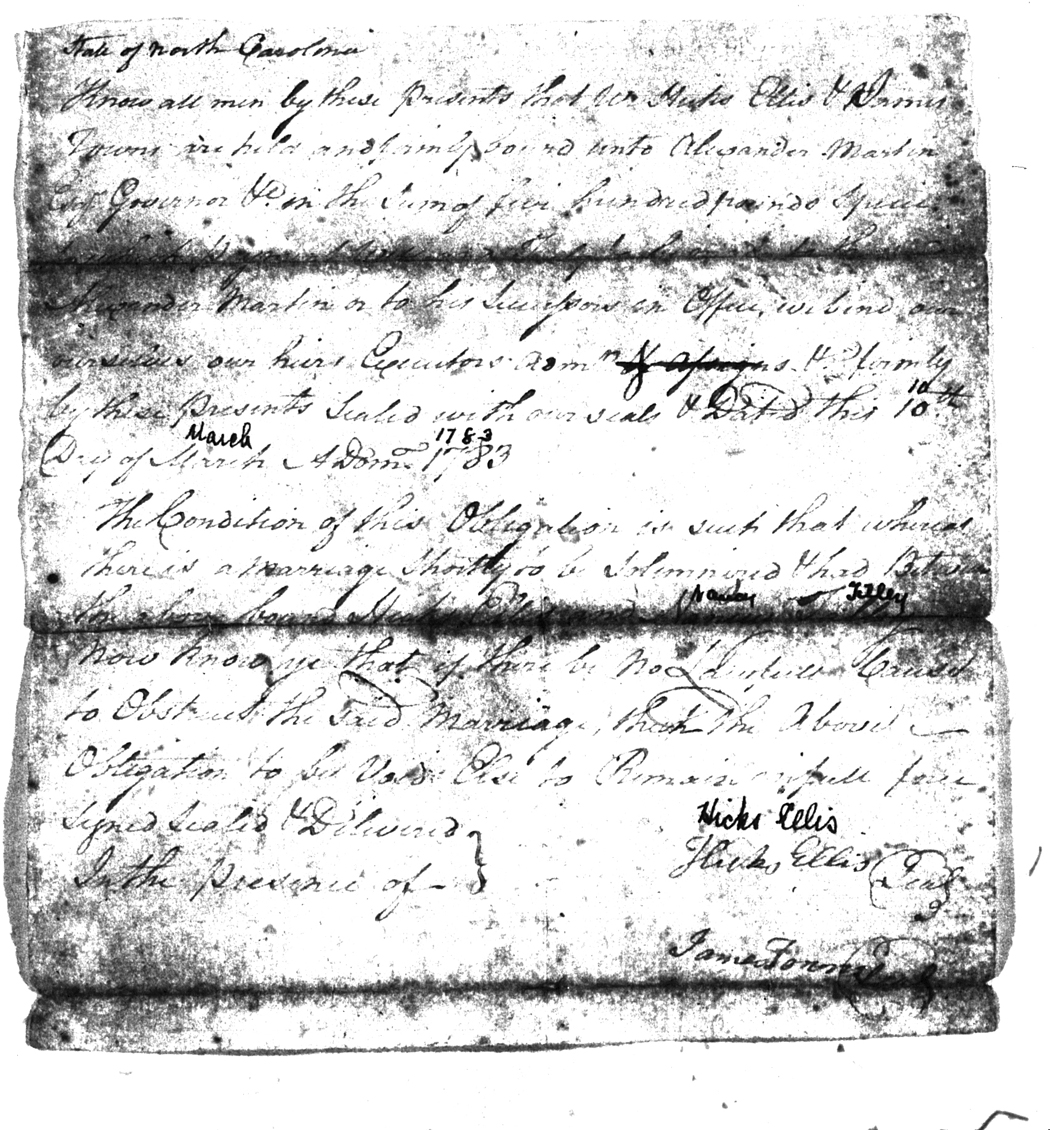 State of North Carolina
Know all men by these Presents that We Hicks Ellis & James
Towns are held and firmly bound unto Alexander Martin
Esqr. Governor &c. in the Sum of five hundred pounds Specie
Alexander Martin or to his Successors in Office, we bind our
ourselves our heirs Executors Adm &c firmly
by these Presents Sealed with our seals & Dated this 10th
10
March 1783
Day of March A Dom. 1783
The Condition of this Obligation is such that whereas
there is a Marriage Shortly to be Solemnized & had Between
Nancy Tilley
the above bound Hicks Ellis and
Now know ye that if there be no Lawfull Cause
to Obstruct the Said Marriage, then the Above
Obligation to be Void Else to Remain in full force
Signed Sealed & Delivered
In the Presence of
Hicks Ellis
Hicks Ellis Seal
James Towns Seal